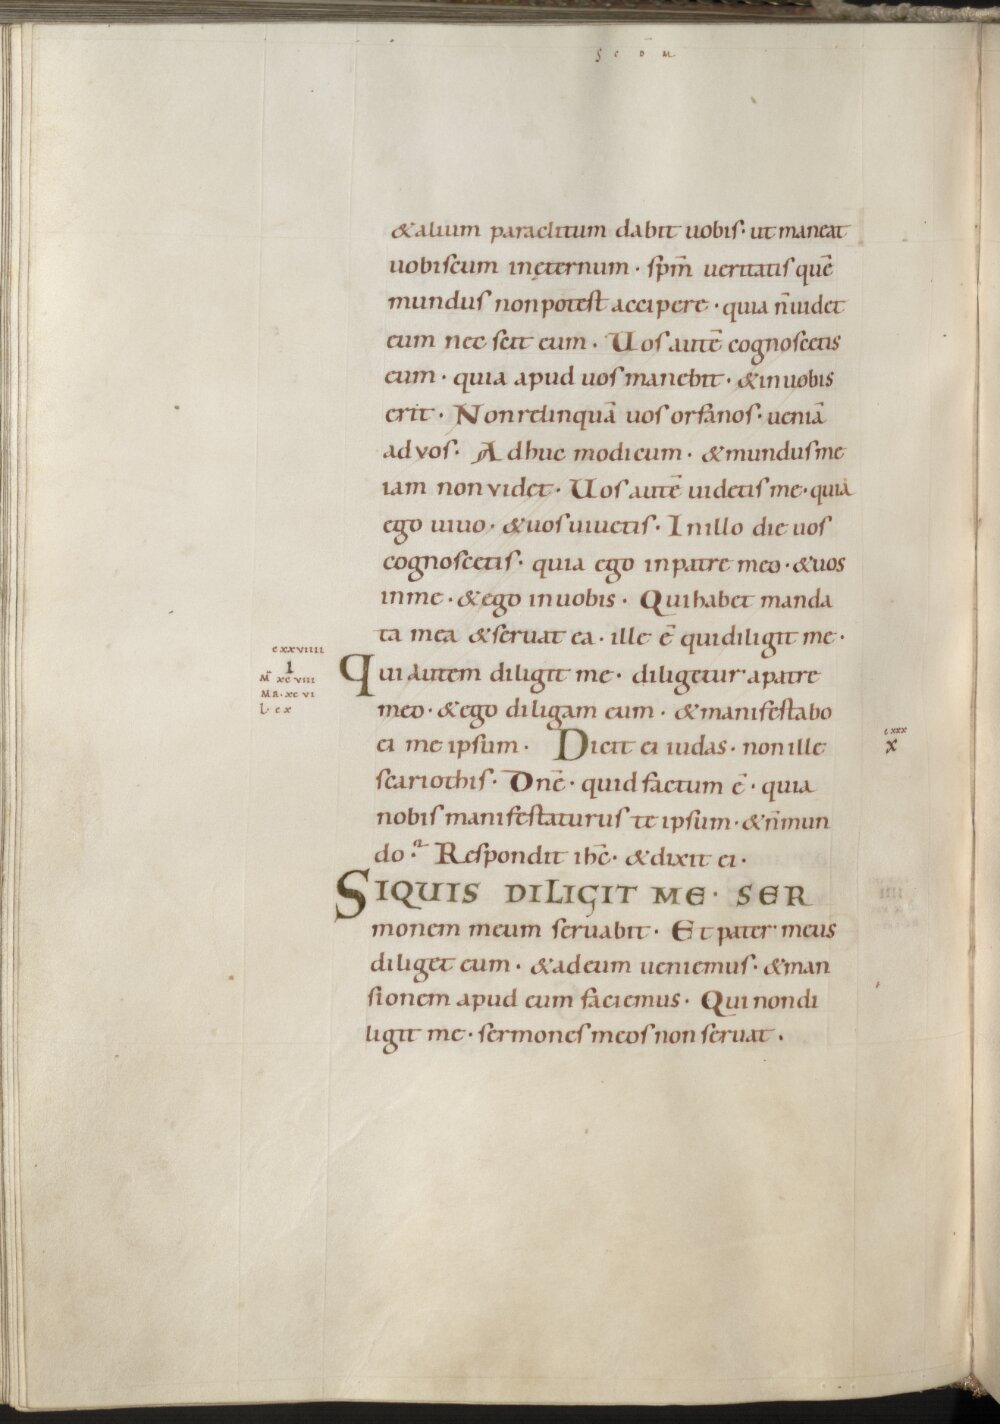 S C D̄ M
&alium paraclitum dabit uobis· ut maneat
uobiscum inęternum · sp̄m ueritatis quē
mundus non potest accipere · quia n̄ uidet
eum nec scit eum · Uos autē cognoscetis
eum · quia apud uos manebit · & in uobis
erit · Non relinquā uos orfanos · ueniā
ad vos · Adhuc modicum · & mundus me
iam non videt · Uos autē uidetis me · quia
ego uiuo · & uos uiuetis · In illo die uos
cognoscetis · quia ego in patre meo · & uos
in me · & ego in uobis · Qui habet manda
ta mea & seruat ea · ille ē qui diligit me ·
cxxviiii
I
M̄ xcviii
MR · xcvi
L · cx
Qui autem diligit me · diligetur a patre
meo · & ego diligam eum · & manifestabo
ei me ipsum · Dicit ei iudas · non ille
cxxx
x
scariothis · Dn̄e · quid factum ē · quia
nobis manifestaturus te ipsum · & n̄ mun
do · Respondit ih̄c · & dixit ei ·
SIQUIS DILIGIT ME · SER
monem meum seruabit · Et pater meus
diliget eum · & ad eum ueniemus · & man
sionem apud eum faciemus · Qui non di
ligit me · sermones meos non seruat ·